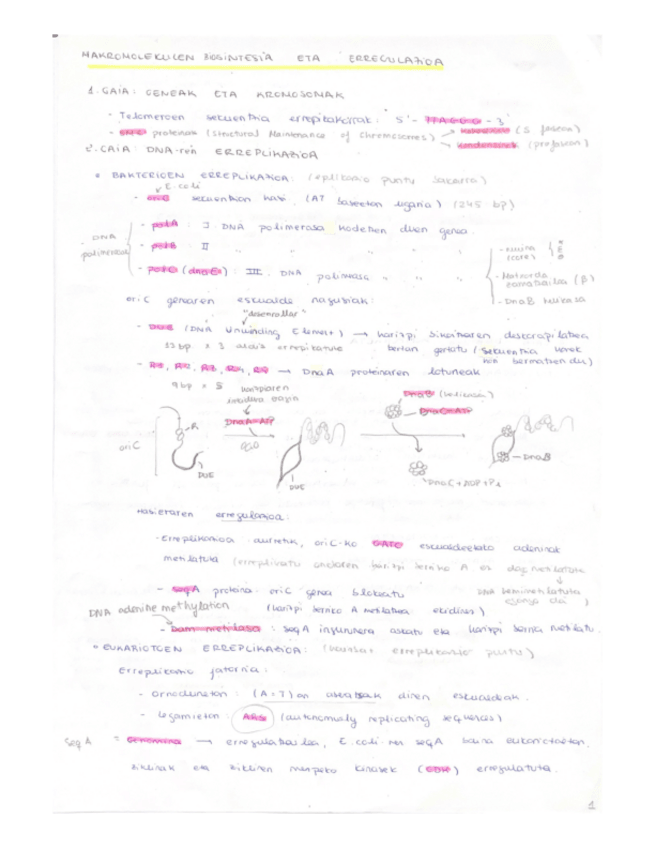 MAKROMOLEKULEN BIOSINTESIA ETA ERREGULAZIOA
1. GAIA: GENEAK ETA KROMOSOMAK
- Telomeroen sekuentzia errepikakorrak: 5' - TTAGGG - 3'
- SMC proteinak (Structural Maintenance of Chromosomes) → kohesinak (S fasean)
→ kondensinak (profasean)
2. GAIA: DNA-ren ERREPLIKAZIOA
• BAKTERIOEN ERREPLIKAZIOA: (replikazio puntu bakarra)
E.coli
- oriC sekuentzian hasi (AT baseetan ugaria) (245 bp)
- DNA polimerasak
- polA : I DNA polimerasa kodetzen duen genea.
- polB II " " " "
- polC (dnaE) : III. DNA polimerasa " " "
(core)
(β)
- DnaB helikasa
ori.C genearen eskualde nagusiak:
"desenrollar"
- DUE (DNA Unwinding Element) → harizpi bikoitzaren
13 bp x 3 aldiz errepikatuta bertan gertatu (sekuentzia horek
- R1, R2, R3, R4, R5 → DnaA proteinaren lotuneak
9 bp x 5
DnaB (helikasa)
DnaA-ATP
DnaC-ATP
oriC
R
DUE
DUE
DnaB
DnaC + ADP + Pi
Hasieraren erregulazioa:
- Erreplikazioa aurretik, oriC-ko GATC eskualdeetako adeninak
metilatuta (erreplikatu ondoren harizpi berriko A ez dago metilatuta
DNA hemimetilatuta
egongo da)
- seqA proteina oriC genea blokeatu
(harizpi berriko A metilatzea ekidinez)
DNA adenine methylation
- Dam metilasa : seqA ingurunera askatu eta harizpi berria metilatu.
• EUKARIOTOEN ERREPLIKAZIOA: (hainbat erreplikazio puntu)
Erreplikazio jatorria:
- Ornodunetan : (A=T)an aberatsak diren eskualdeak.
- Legamietan: ARSs (autonomously replicating sequences)
SeqA = Geminina → erregulatzailea, E.coli-ren seqA baina eukariotoetan.
Ziklinak eta ziklinen menpeko kinasek (CDK) erregulatuta.
1